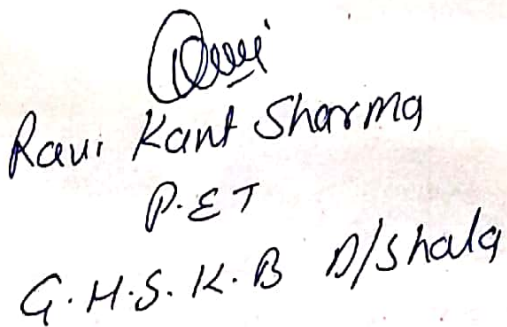 Ravi
Ravi Kant Sharma
P.ET
G.H.S.K.B D/Shala